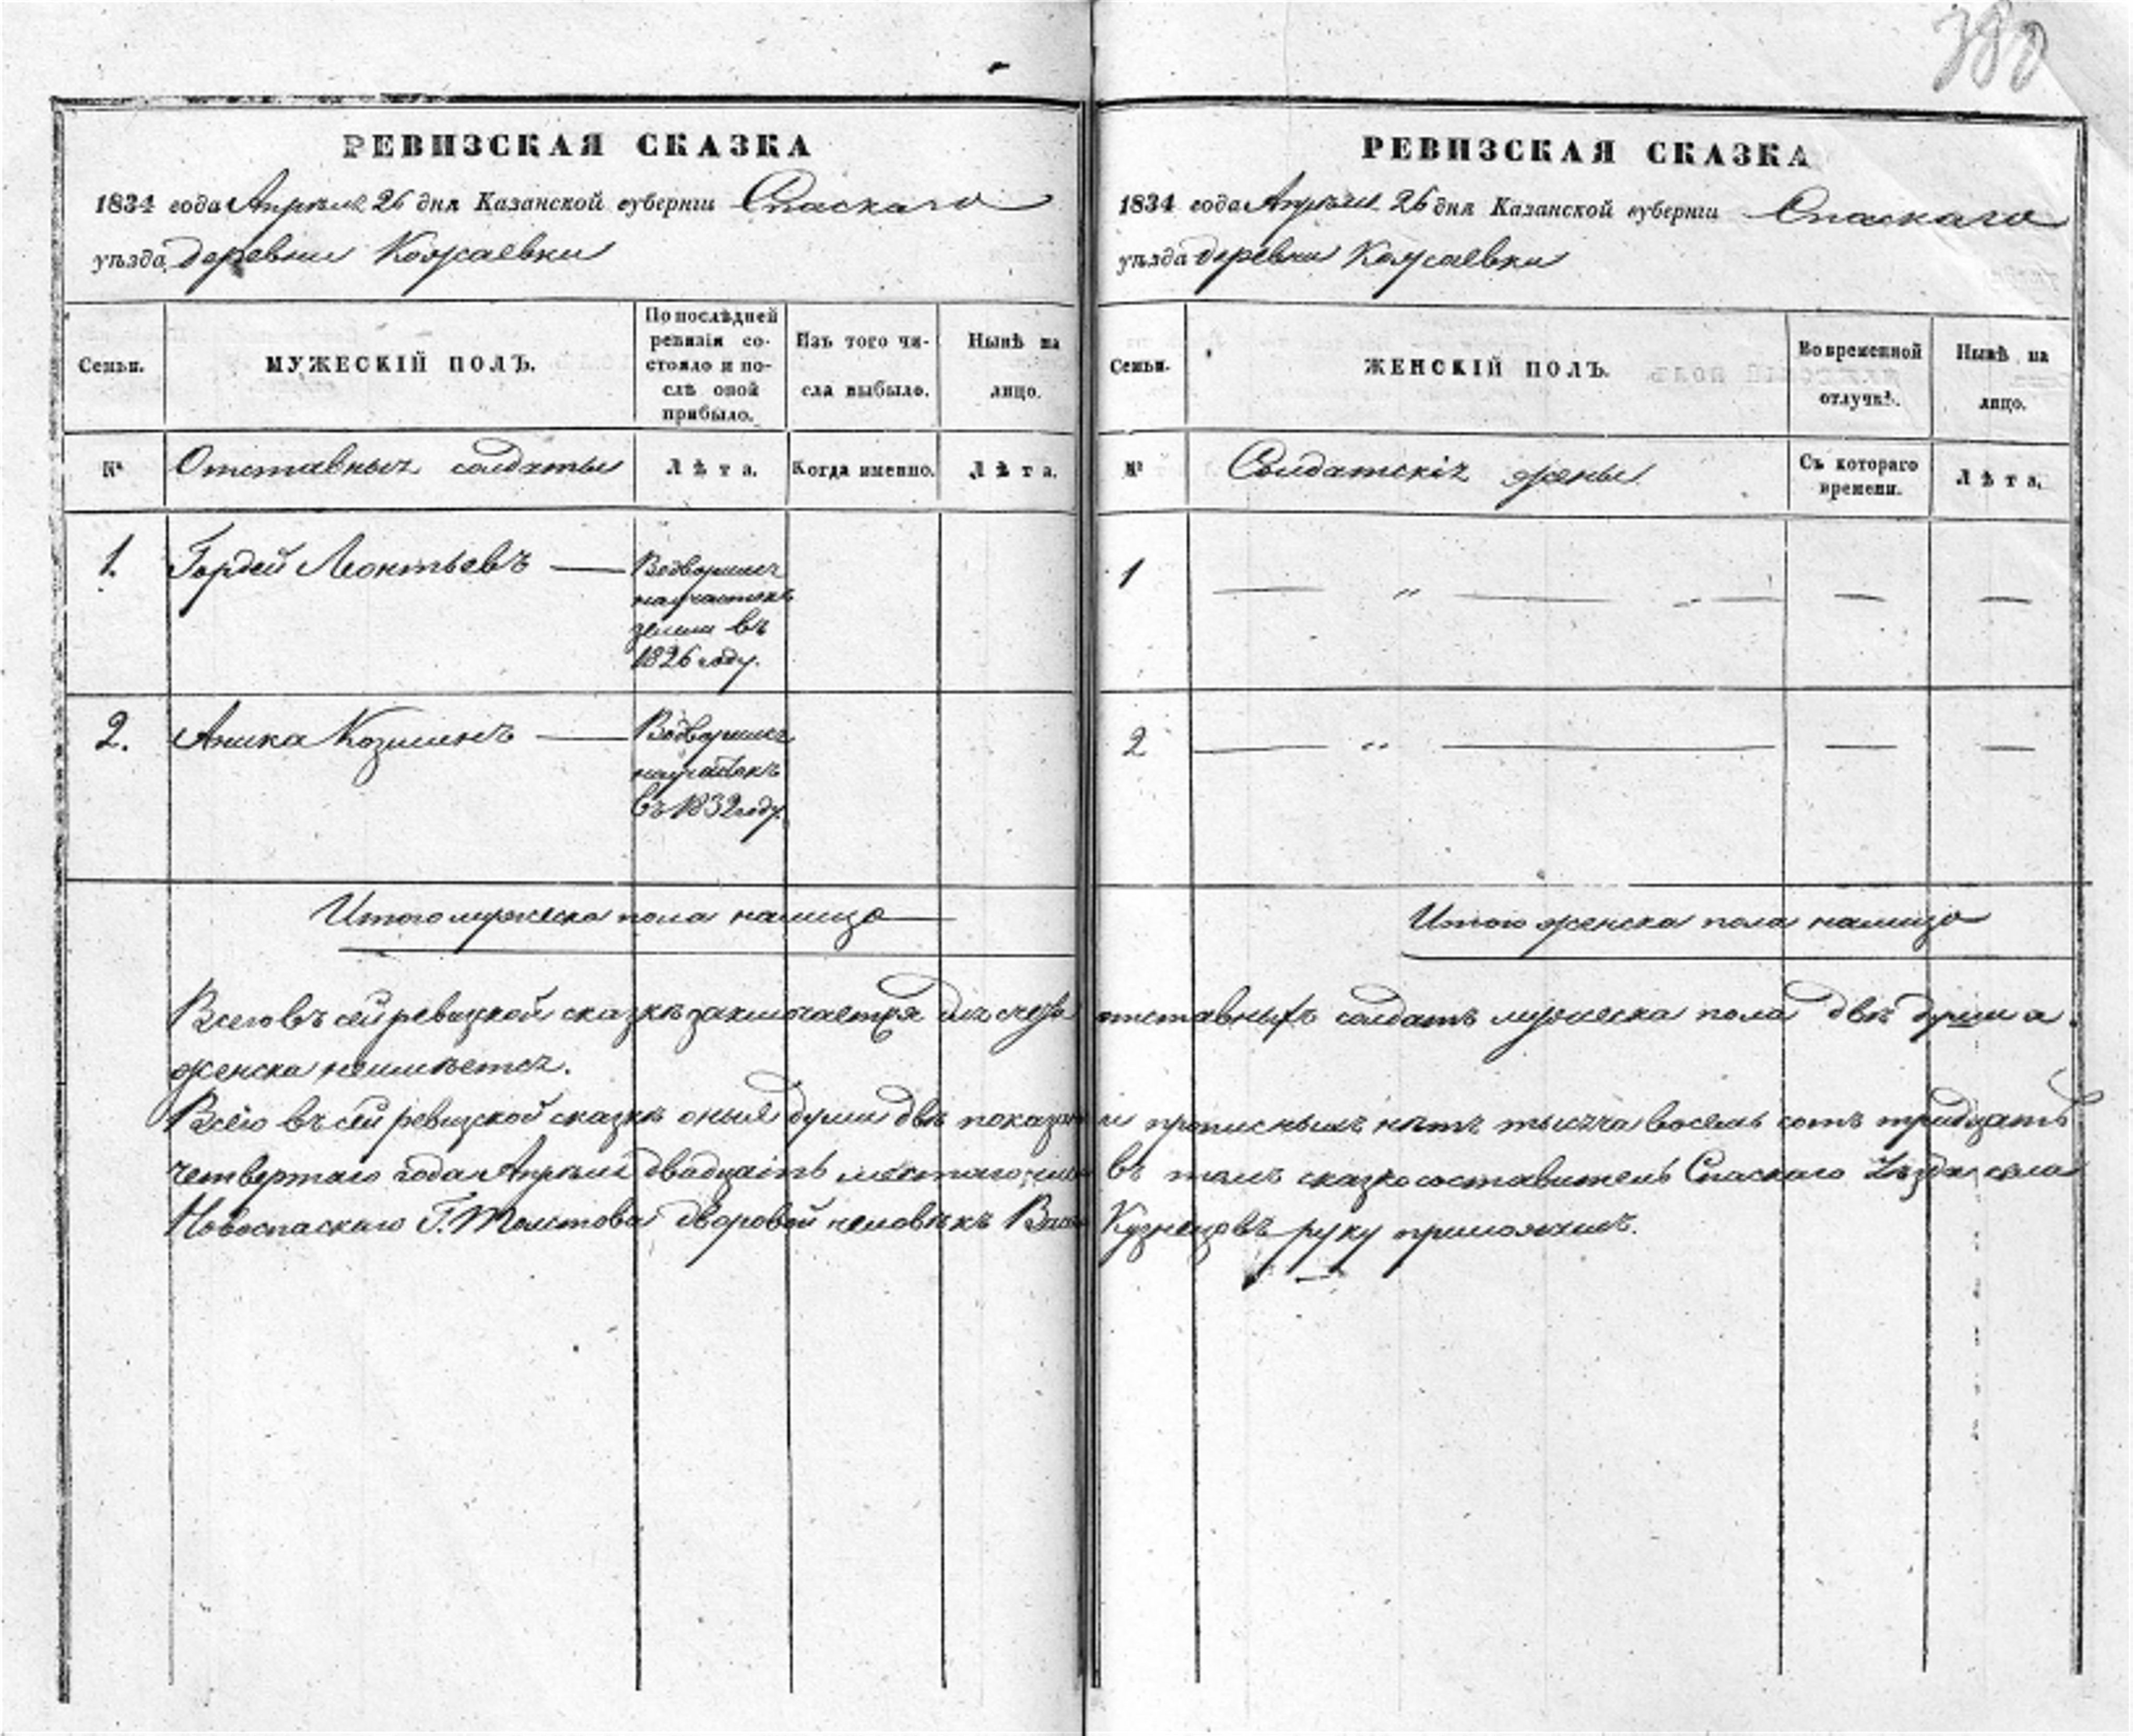 380
РЕВИЗСКАЯ СКАЗКА
1834 года Апреля 26 дня Казанской губернiи Спаскаго
уѣзда деревни Кожаевки
Семьи.
МУЖЕСКIЙ ПОЛЪ.
По послѣдней
ревизiи со-
стояло и по-
слѣ оной
прибыло.
Изъ того чи-
сла выбыло.
Нынѣ на
лицо.
№
Отставныхъ солдаты
Лѣта.
Когда именно.
Лѣта.
1.
Гордей Леонтьевъ
Водворилъ
на участокъ
земли въ
1826 году.
2.
Аника Козминъ
Водворилъ
на участокъ
въ 1832 году.
Итого мужеска пола налицо
РЕВИЗСКАЯ СКАЗКА
1834 года Апреля 26 дня Казанской губернiи Спаскаго
уѣзда деревни Кожаевки
Семьи.
ЖЕНСКIЙ ПОЛЪ.
Во временной
отлучкѣ.
Нынѣ на
лицо.
№
Солдатскiх жены
Съ котораго
времени.
Лѣта.
1
2
Итого женска пола налицо
Всего въ сей ревизкой сказкѣ заключается отставныхъ солдатъ мужеска пола двѣ души а
женска неимѣется.
Всего въ сей ревизкой сказкѣ оныя души двѣ и прописныхъ нѣтъ тысяча восемь сотъ тридцать
четвертаго года Апреля двадцать шестаго въ томъ сказкосоставитель Спаскаго уѣзда села
Новоспаскаго Г. Толстова дворовой человѣкъ Кузнецовъ руку приложилъ.